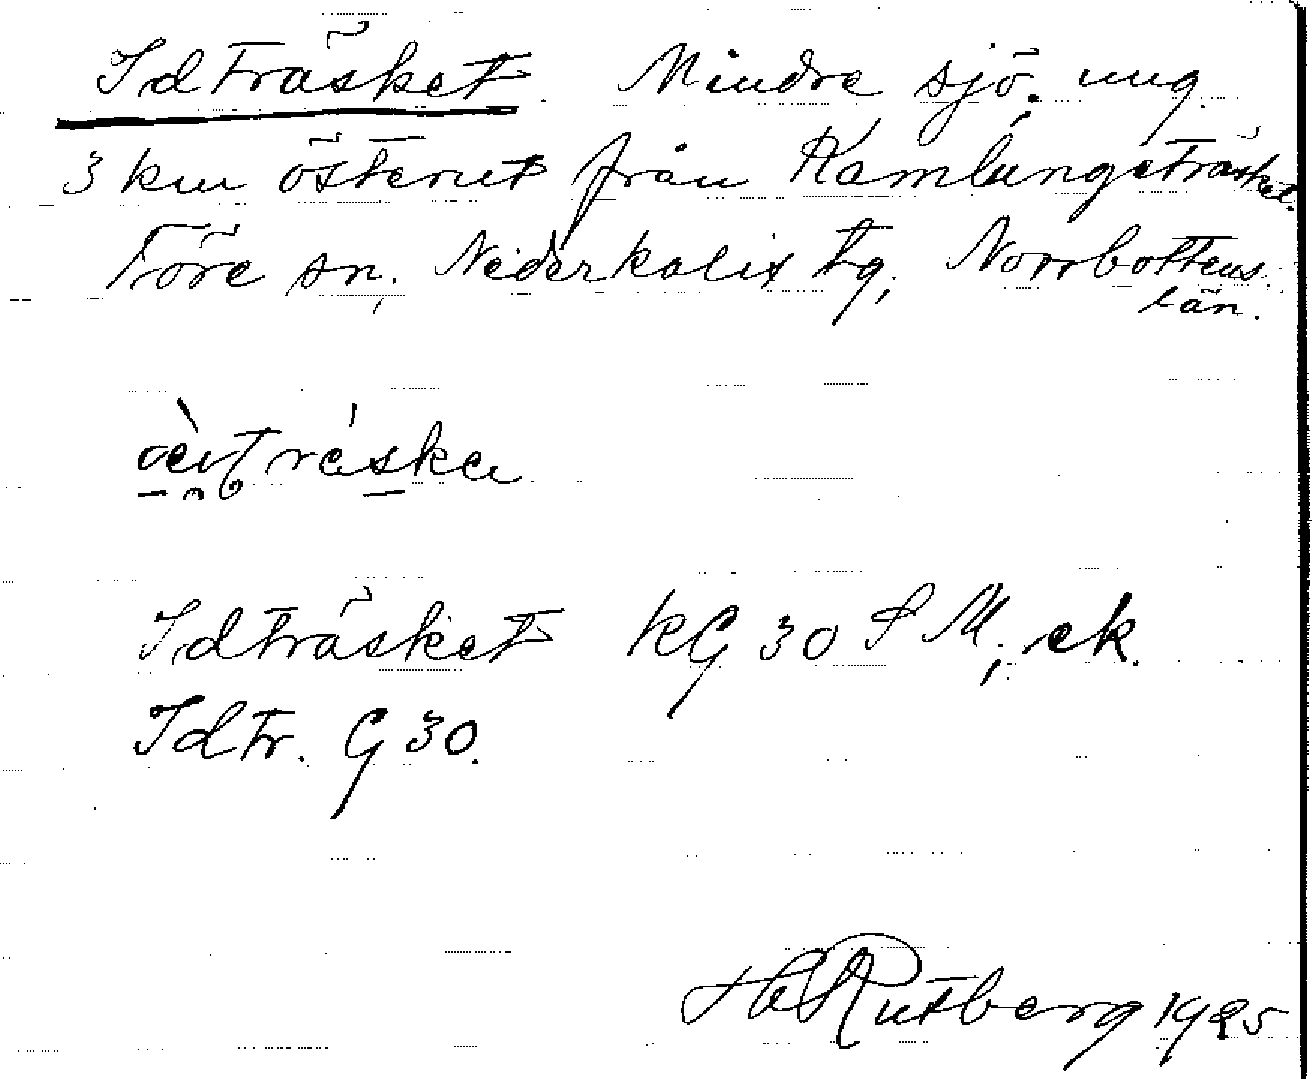 Idträsket Mindre sjö, ung.
3 km österut från Kamlungeträsket.
Töre sn, Nederkalix tg, Norrbottens
län.
Idträsket KG 30 SM, ek.
Idtr. G 30.
Hn Rutberg 1925